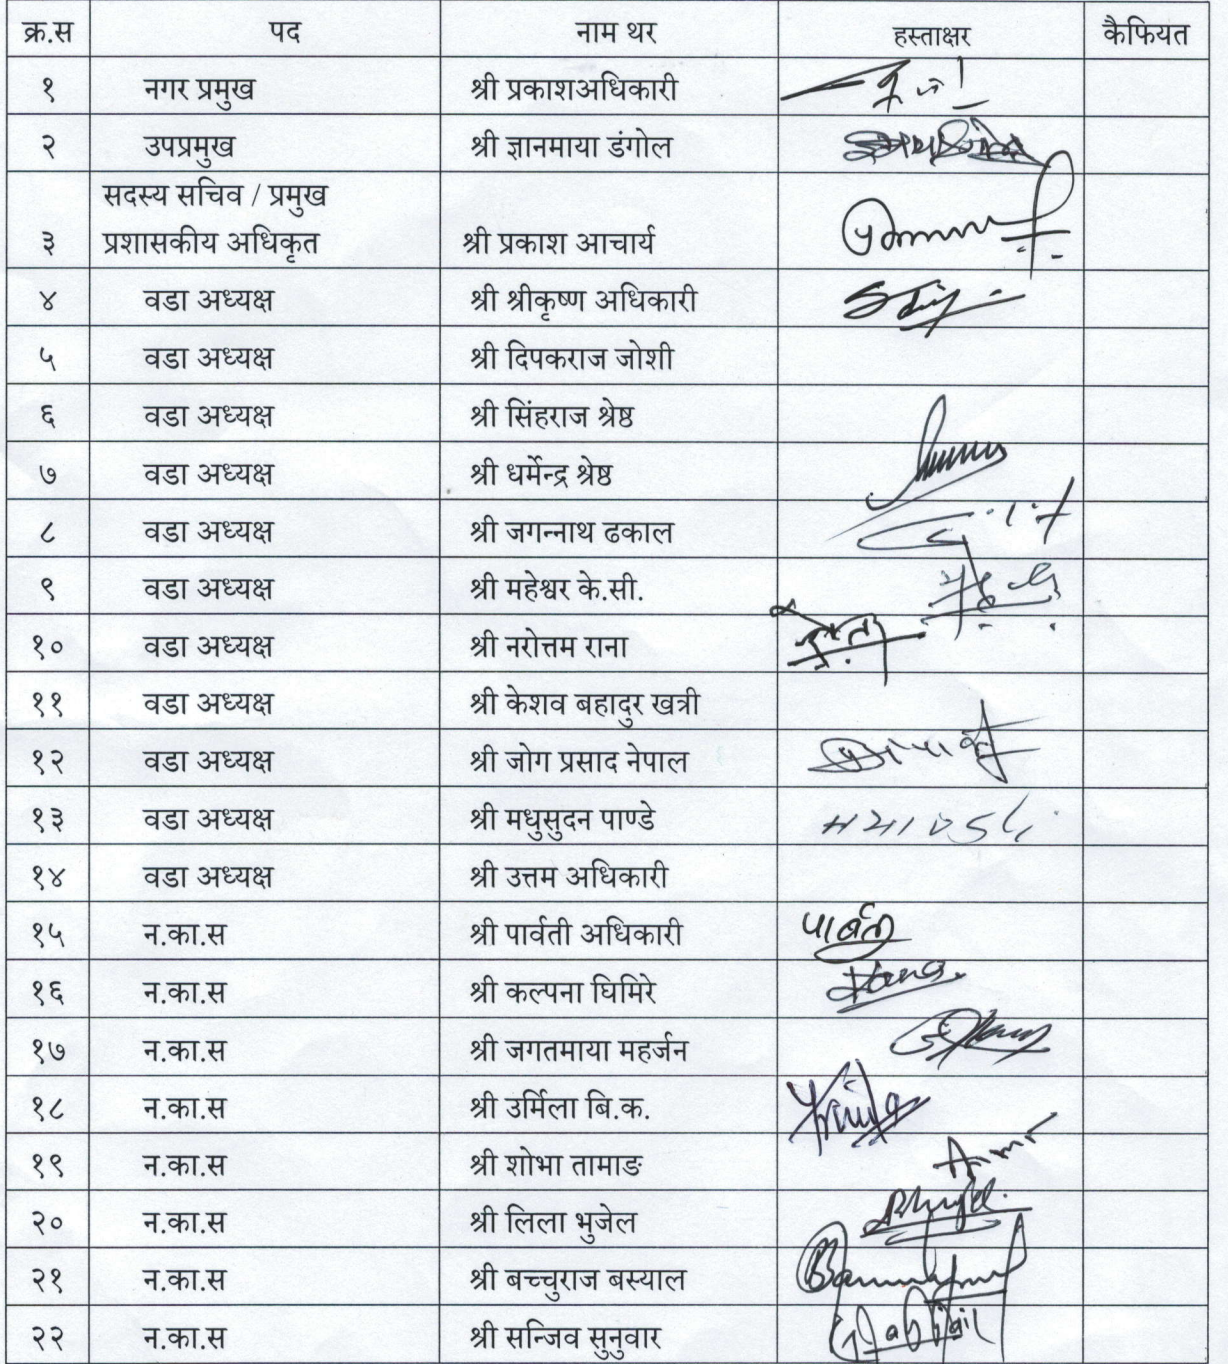 क्र.स पद नाम थर हस्ताक्षर कैफियत
१ नगर प्रमुख श्री प्रकाशअधिकारी
२ उपप्रमुख श्री ज्ञानमाया डंगोल
सदस्य सचिव / प्रमुख
३ प्रशासकीय अधिकृत श्री प्रकाश आचार्य
४ वडा अध्यक्ष श्री श्रीकृष्ण अधिकारी
५ वडा अध्यक्ष श्री दिपकराज जोशी
६ वडा अध्यक्ष श्री सिंहराज श्रेष्ठ
७ वडा अध्यक्ष श्री धर्मेन्द्र श्रेष्ठ
८ वडा अध्यक्ष श्री जगन्नाथ ढकाल
९ वडा अध्यक्ष श्री महेश्वर के.सी.
१० वडा अध्यक्ष श्री नरोत्तम राना
११ वडा अध्यक्ष श्री केशव बहादुर खत्री
१२ वडा अध्यक्ष श्री जोग प्रसाद नेपाल
१३ वडा अध्यक्ष श्री मधुसुदन पाण्डे
१४ वडा अध्यक्ष श्री उत्तम अधिकारी
१५ न.का.स श्री पार्वती अधिकारी पार्बती
१६ न.का.स श्री कल्पना घिमिरे
१७ न.का.स श्री जगतमाया महर्जन
१८ न.का.स श्री उर्मिला बि.क.
१९ न.का.स श्री शोभा तामाङ
२० न.का.स श्री लिला भुजेल
२१ न.का.स श्री बच्चुराज बस्याल
२२ न.का.स श्री सन्जिव सुनुवार